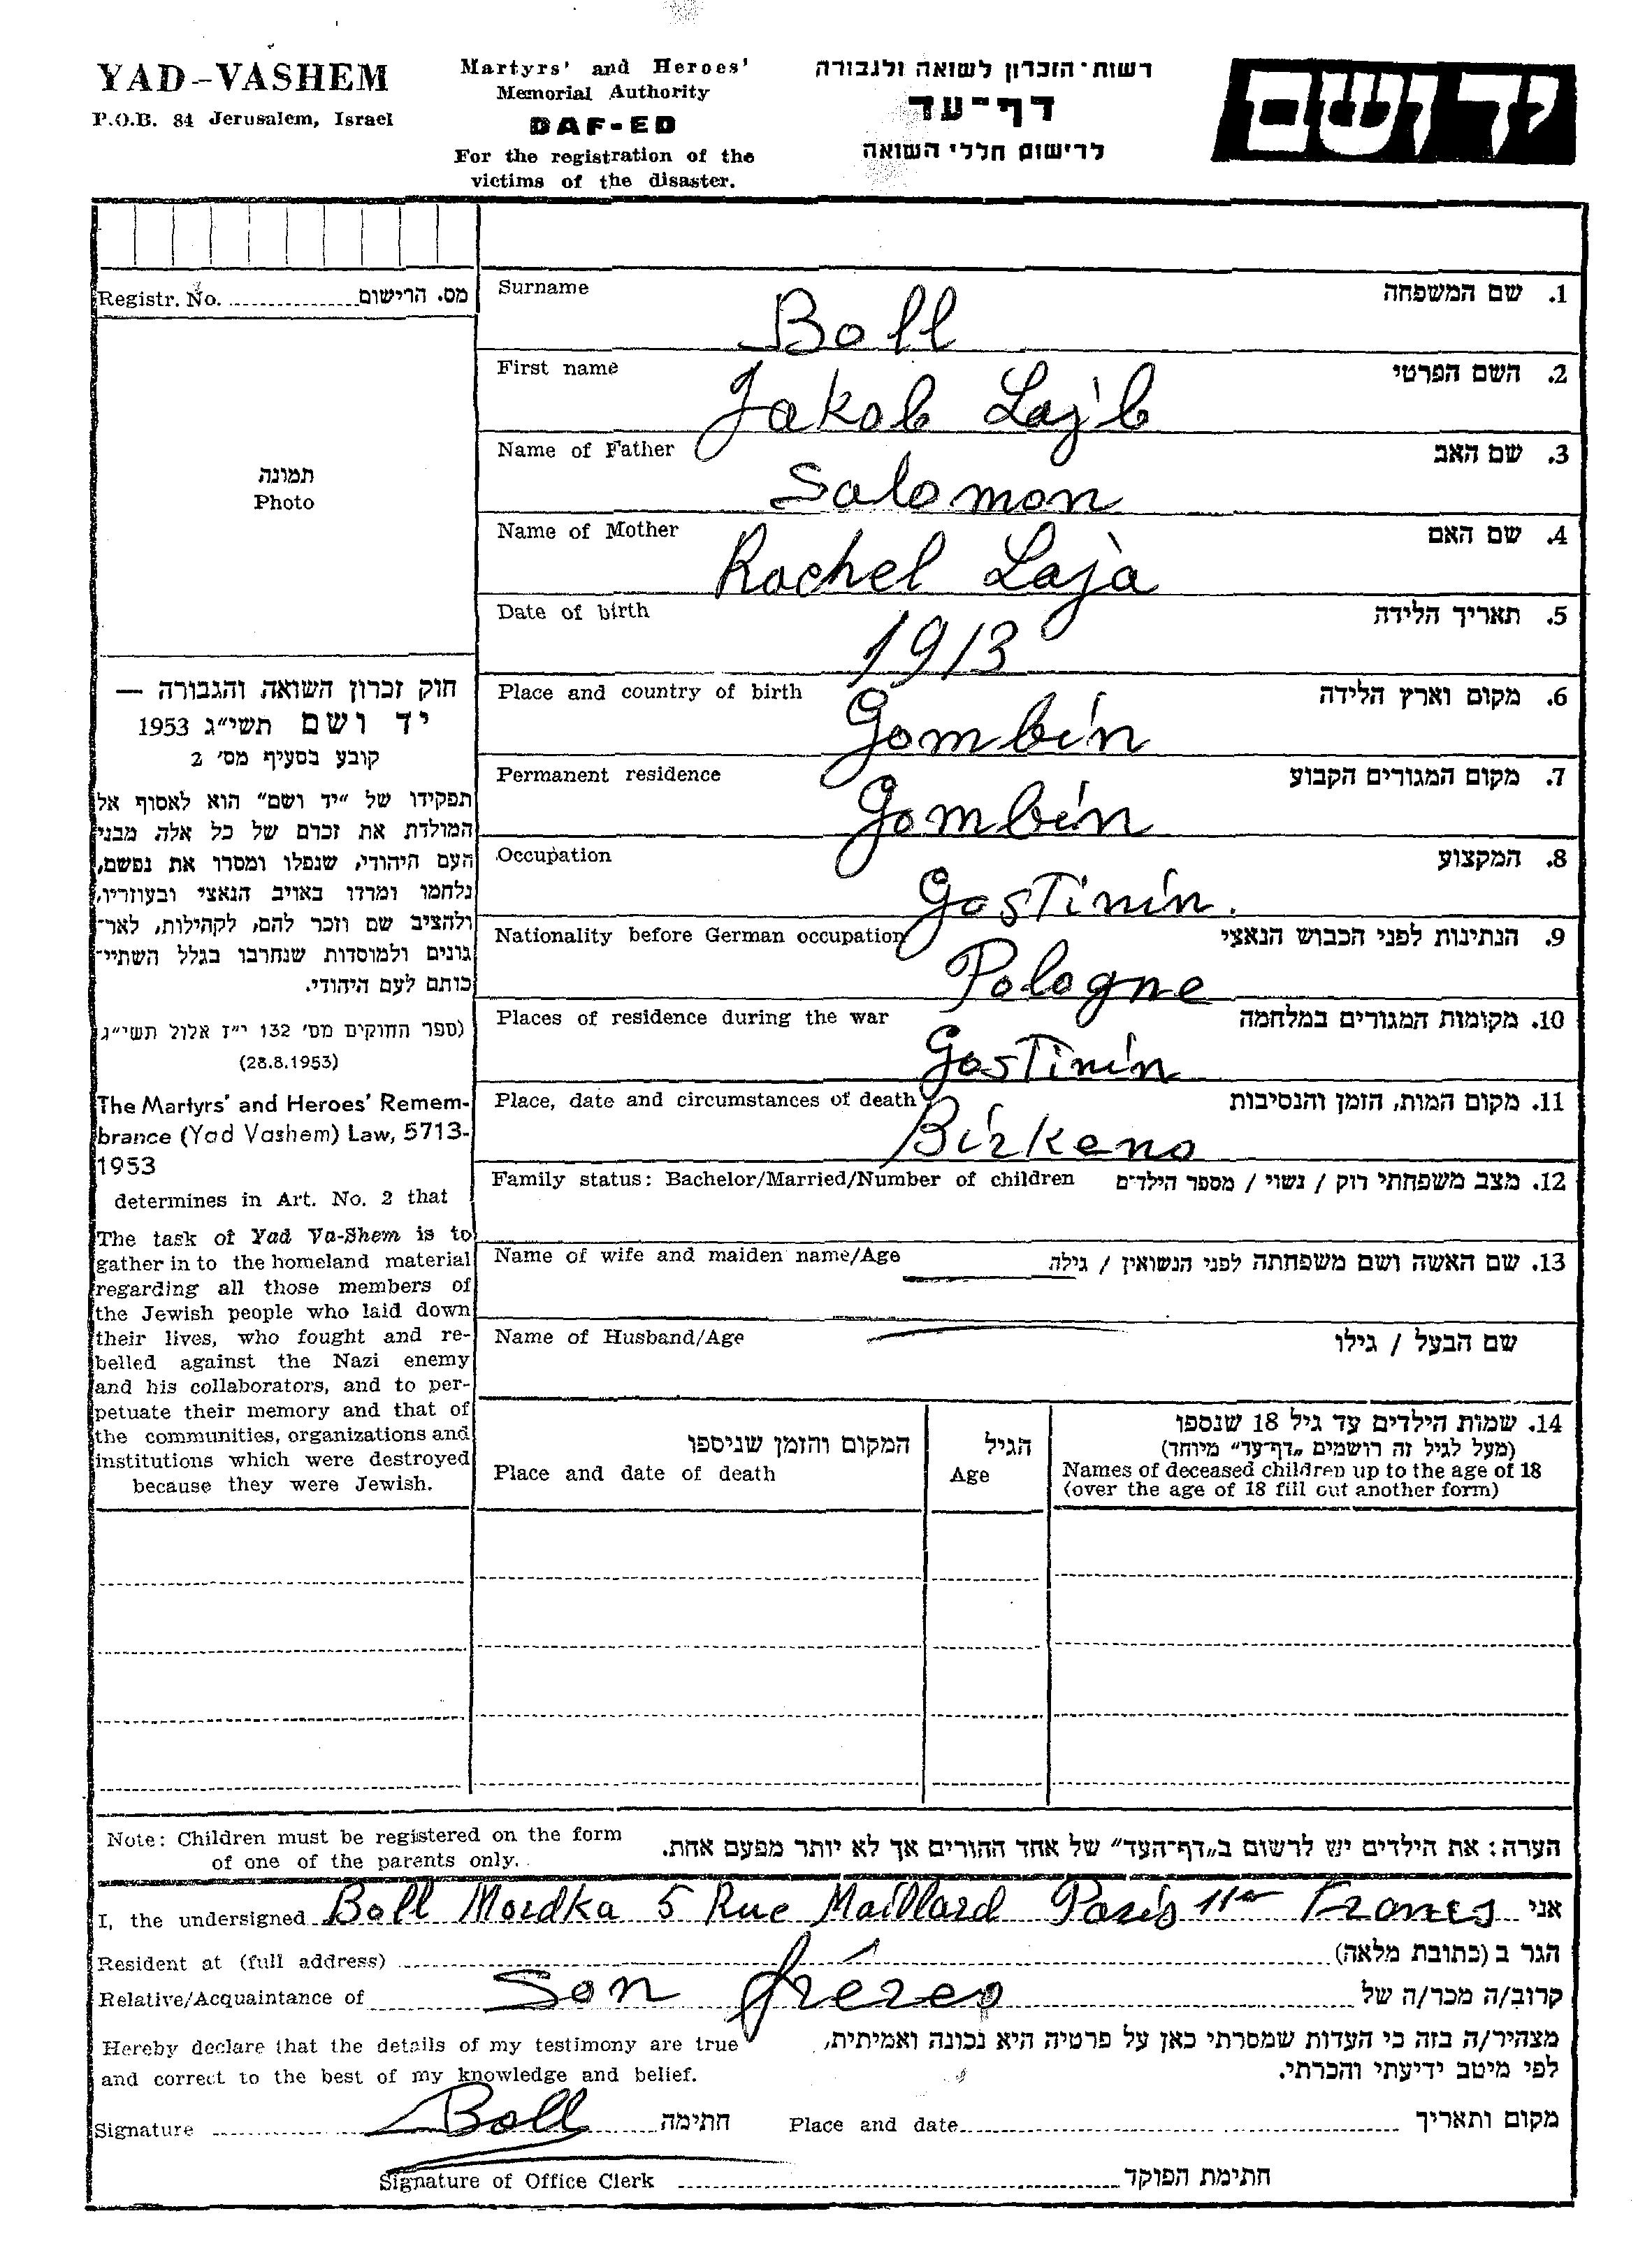 YAD-VASHEM
P.O.B. 84 Jerusalem, Israel
Martyrs' and Heroes'
Memorial Authority
DAF-ED
For the registration of the
victims of the disaster.
רשות-הזכרון לשואה ולגבורה
דף-עד
לרישום חללי השואה
יד ושם
Registr. No. מס. הרישום
תמונה
Photo
חוק זכרון השואה והגבורה —
יד ושם תשי"ג 1953
קובע בסעיף מס' 2
תפקידו של "יד ושם" הוא לאסוף אל
המולדת את זכרם של כל אלה מבני
העם היהודי, שנפלו ומסרו את נפשם,
נלחמו ומרדו באויב הנאצי ובעוזריו,
ולהציב שם וזכר להם, לקהילות, לאר-
גונים ולמוסדות שנחרבו בגלל השתיי-
כותם לעם היהודי.
(ספר החוקים מס' 132 י"ז אלול תשי"ג
(28.8.1953)
The Martyrs' and Heroes' Remem-
brance (Yad Vashem) Law, 5713-
1953
determines in Art. No. 2 that
The task of Yad Va-Shem is to
gather in to the homeland material
regarding all those members of
the Jewish people who laid down
their lives, who fought and re-
belled against the Nazi enemy
and his collaborators, and to per-
petuate their memory and that of
the communities, organizations and
institutions which were destroyed
because they were Jewish.
Surname 1. שם המשפחה
Boll
First name 2. השם הפרטי
Jakob Lajb
Name of Father 3. שם האב
Salomon
Name of Mother 4. שם האם
Rachel Laja
Date of birth 5. תאריך הלידה
1913
Place and country of birth 6. מקום וארץ הלידה
Gombin
Permanent residence 7. מקום המגורים הקבוע
Gombin
Occupation 8. המקצוע
GosTinin.
Nationality before German occupation 9. הנתינות לפני הכבוש הנאצי
Pologne
Places of residence during the war 10. מקומות המגורים במלחמה
GosTinin
Place, date and circumstances of death 11. מקום המות, הזמן והנסיבות
Birkeno
Family status: Bachelor/Married/Number of children 12. מצב משפחתי רוק / נשוי / מספר הילדים
Name of wife and maiden name/Age 13. שם האשה ושם משפחתה לפני הנשואין / גילה
Name of Husband/Age שם הבעל / גילו
14. שמות הילדים עד גיל 18 שנספו
(מעל לגיל זה רושמים "דף-עד" מיוחד)
Names of deceased children up to the age of 18
(over the age of 18 fill out another form)
הגיל
Age
המקום והזמן שניספו
Place and date of death
Note: Children must be registered on the form
of one of the parents only.
הערה: את הילדים יש לרשום ב"דף-העד" של אחד ההורים אך לא יותר מפעם אחת.
I, the undersigned Boll Mordka 5 Rue Maillard Paris 11er France אני
Resident at (full address) הגר ב (כתובת מלאה)
Relative/Acquaintance of Son fréres קרוב/ה מכר/ה של
Hereby declare that the details of my testimony are true
and correct to the best of my knowledge and belief.
מצהיר/ה בזה כי העדות שמסרתי כאן על פרטיה היא נכונה ואמיתית,
לפי מיטב ידיעתי והכרתי.
Signature Boll חתימה Place and date מקום ותאריך
Signature of Office Clerk חתימת הפוקד